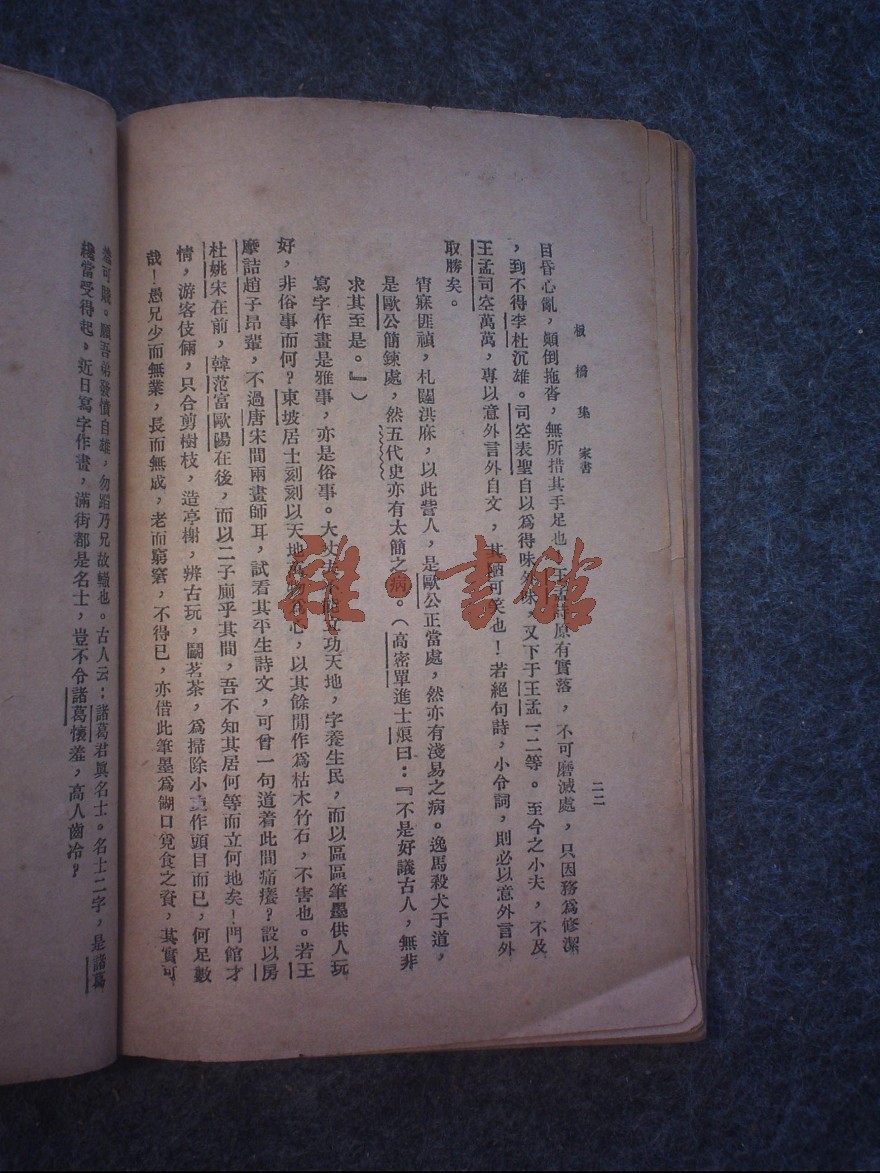 板橋集 家書
二二
目昏心亂，顛倒拖沓，無所措其手足也。王孟詩原有實落，不可磨滅處，只因務爲修潔
，到不得李杜沉雄。司空表聖自以爲得味外味，又下于王孟一二等。至今之小夫，不及
王孟司空萬萬，專以意外言外自文，其陋可笑也！若絕句詩，小令詞，則必以意外言外
取勝矣。
宵寐匪禎，札闥洪庥，以此訾人，是歐公正當處，然亦有淺易之病。逸馬殺犬于道，
是歐公簡鍊處，然五代史亦有太簡之病。（高密單進士𤸫曰：『不是好議古人，無非
求其至是。』）
寫字作畫是雅事，亦是俗事。大丈夫不能立功天地，字養生民，而以區區筆墨供人玩
好，非俗事而何？東坡居士刻刻以天地萬物爲心，以其餘閒作爲枯木竹石，不害也。若王
摩詰趙子昂輩，不過唐宋間兩畫師耳，試看其平生詩文，可曾一句道着此間痛癢？設以房
杜姚宋在前，韓范富歐陽在後，而以二子廁乎其間，吾不知其居何等而立何地矣！門館才
情，游客伎倆，只合剪樹枝，造亭榭，辨古玩，鬬茗茶，爲掃除小吏作頭目而已，何足數
哉！愚兄少而無業，長而無成，老而窮窘，不得已，亦借此筆墨爲餬口覓食之資，其實可
羞可賤。願吾弟發憤自雄，勿蹈乃兄故轍也。古人云：諸葛君眞名士。名士二字，是諸葛
纔當受得起，近日寫字作畫，滿街都是名士，豈不令諸葛懷羞，高人齒冷？
雜·書館